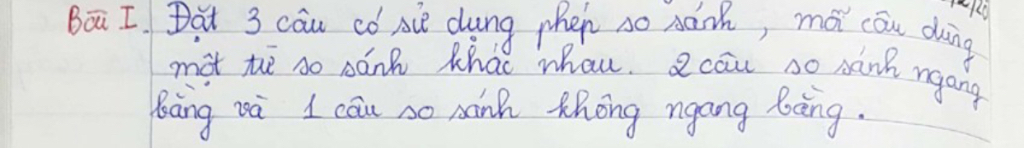 Bài I. Đặt 3 câu có sử dụng phép so sánh, mỗi câu dùng
một từ so sánh khác nhau. 2 câu so sánh ngang
bằng và 1 câu so sánh không ngang bằng.